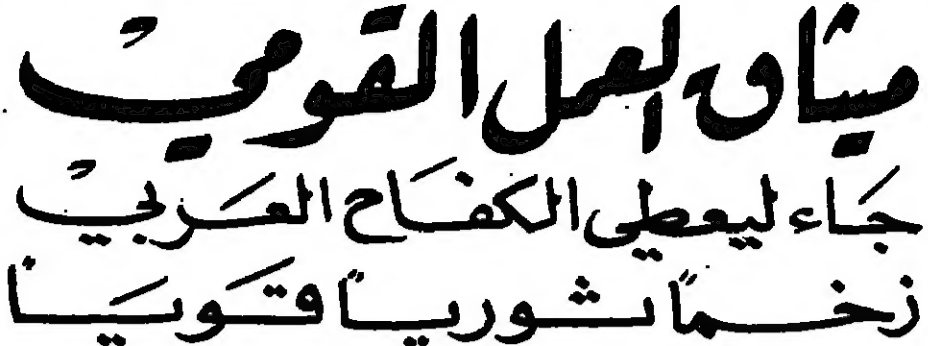 ميثاق العمل القومي
جَاء ليعطي الكفَاح العَربي
زخمًا ثوريًا قَويَـًا